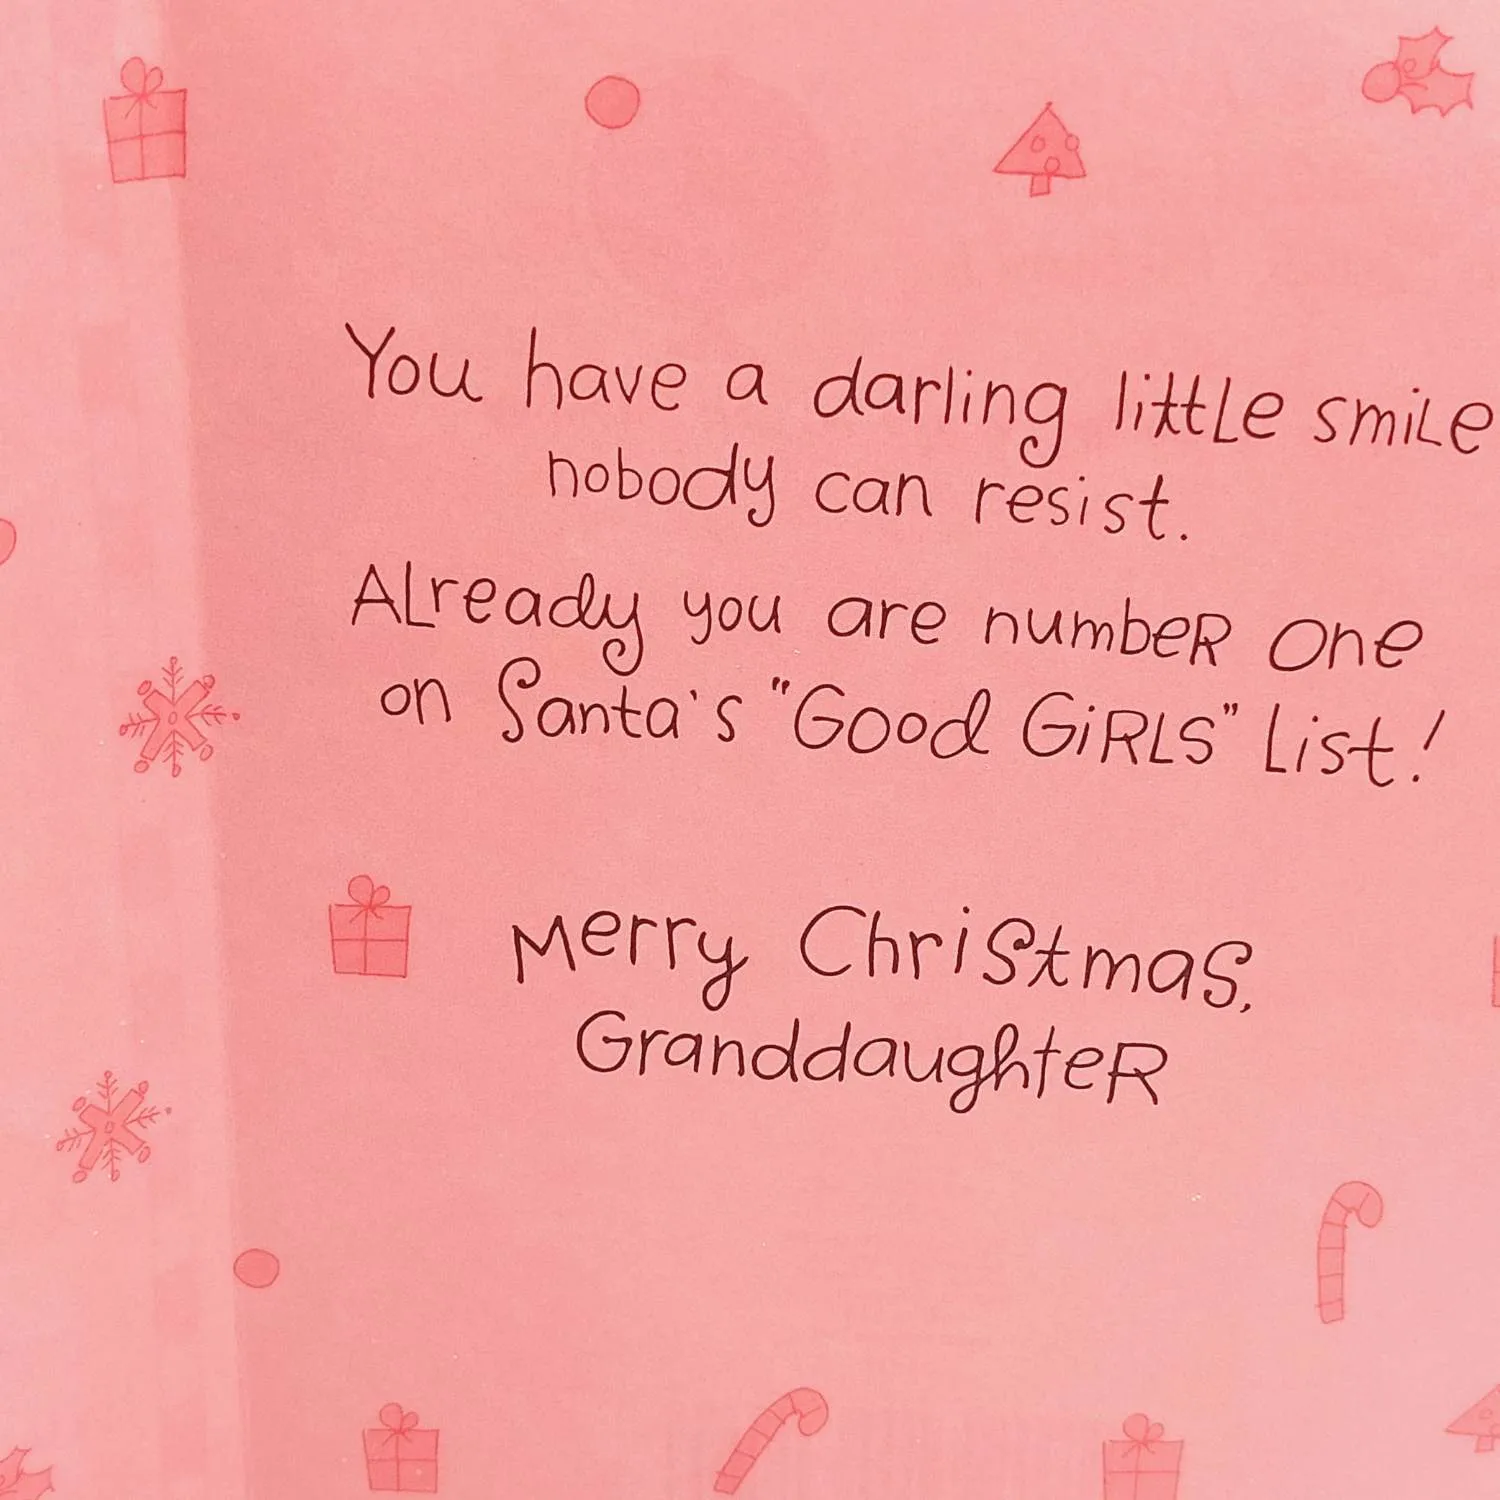 You have a darling little smile
nobody can resist.
Already you are number one
on Santa's "Good Girls" list!
Merry Christmas,
Granddaughter